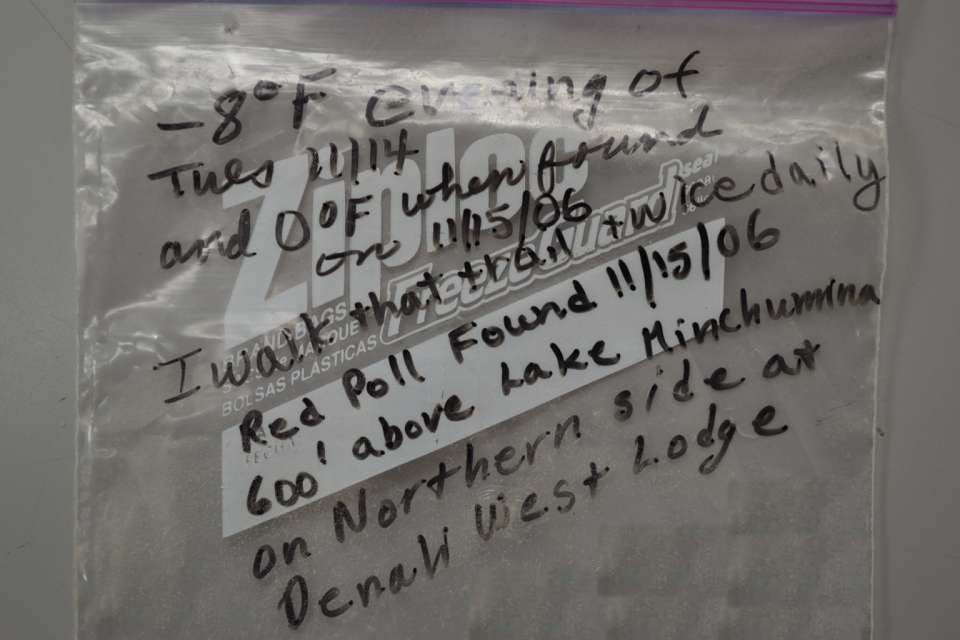 -8°F evening of
Tues 11/14
and 0°F when found
on 11/15/06
I walk that trail twice daily
Red Poll Found 11/15/06
600' above Lake Minchumina
on Northern side at
Denali West Lodge
Ziploc
FreezeGuard seal
BRAND BAGS
BOLSAS PLÁSTICAS